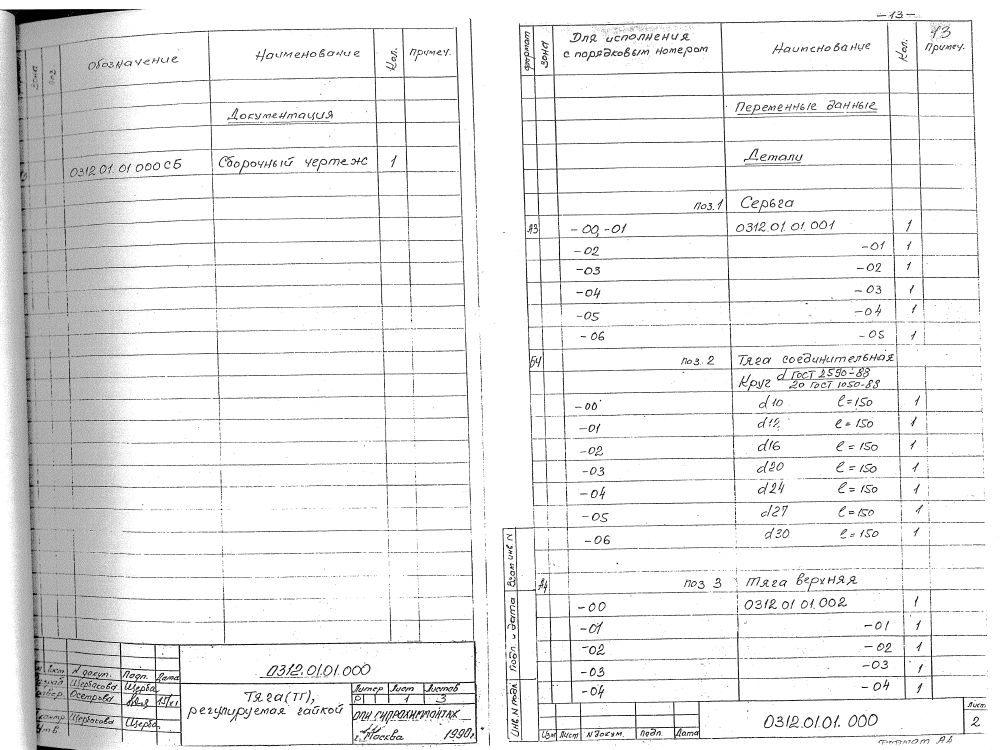 Зона
Поз
Обозначение
Наименование
Кол.
Примеч.
Документация
0312.01.01 000 СБ Сборочный чертеж 1
Лист N докум. Подп. Дата
Щербакова Щерба
Осетрова
Щербакова Щерба
Утв
0312.01.01.000
Тяга(ТГ),
регулируемая гайкой
Литер Лист Листов
Р 1 3
г. Москва 1990г.
-13-
13
Формат
Зона
Для исполнения
с порядковым номером
Наименование
Кол.
Примеч.
Переменные данные
Детали
поз.1 Серьга
А3 -00,-01 0312.01.01.001 1
-02 -01 1
-03 -02 1
-04 -03 1
-05 -04 1
-06 -05 1
БЧ поз. 2 Тяга соединительная
Круг d ГОСТ 2590-88
20 ГОСТ 1050-88
-00 d10 ℓ=150 1
-01 d12 ℓ=150 1
-02 d16 ℓ=150 1
-03 d20 ℓ=150 1
-04 d24 ℓ=150 1
-05 d27 ℓ=150 1
-06 d30 ℓ=150 1
А4 поз 3 Тяга верхняя
-00 0312.01.01.002 1
-01 -01 1
-02 -02 1
-03 -03 1
-04 -04 1
Взам инв N
Подп. и дата
Инв N подл.
Изм Лист N докум. Подп. Дата
0312.01.01.000
Лист
2
Формат А4